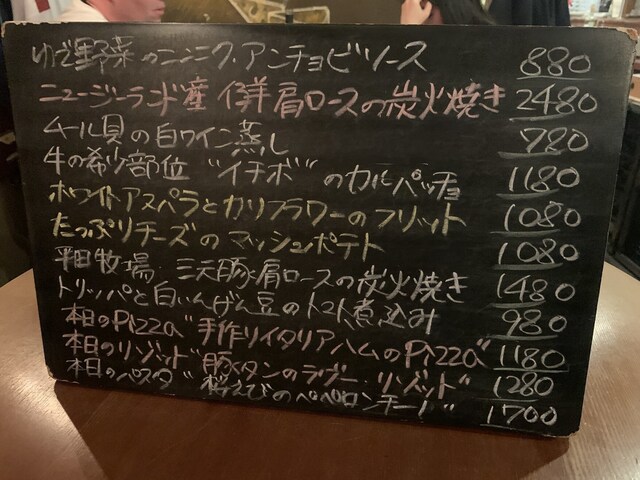 ゆで野菜のニンニク・アンチョビソース 880
ニュージーランド産 仔羊肩ロースの炭火焼き 2480
ムール貝の白ワイン蒸し 780
牛の希少部位 "イチボ" のカルパッチョ 1180
ホワイトアスパラとカリフラワーのフリット 1080
たっぷりチーズのマッシュポテト 1080
平田牧場 三元豚肩ロースの炭火焼き 1480
トリッパと白いんげん豆のトマト煮込み 980
本日のPizza" 手作りイタリアハムのPizza" 1180
本日のリゾット" 豚タンのラグー・リゾット" 1280
本日のパスタ" 桜えびのペペロンチーノ" 1700